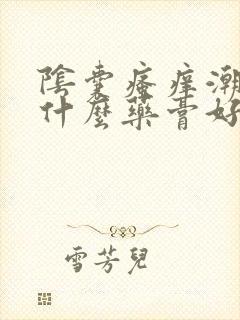 陰囊瘙痒潮
什麼藥膏好
雪芳兒